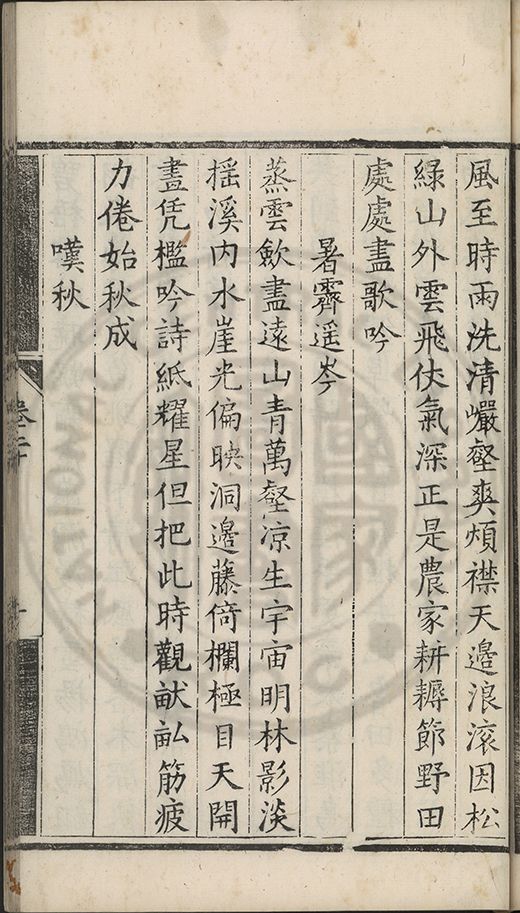 風至時雨洗清巖壑爽煩襟天邊浪滚因松
綠山外雲飛伏氣深正是農家耕耨節野田
處處盡歌吟
暑霽遥岑
蒸雲歛盡遠山青萬壑凉生宇宙明林影淡
揺溪内水崖光偏映洞邊藤倚欄極目天開
畫凭檻吟詩紙耀星但把此時觀畎畒筋疲
力倦始秋成
嘆秋
卷二十